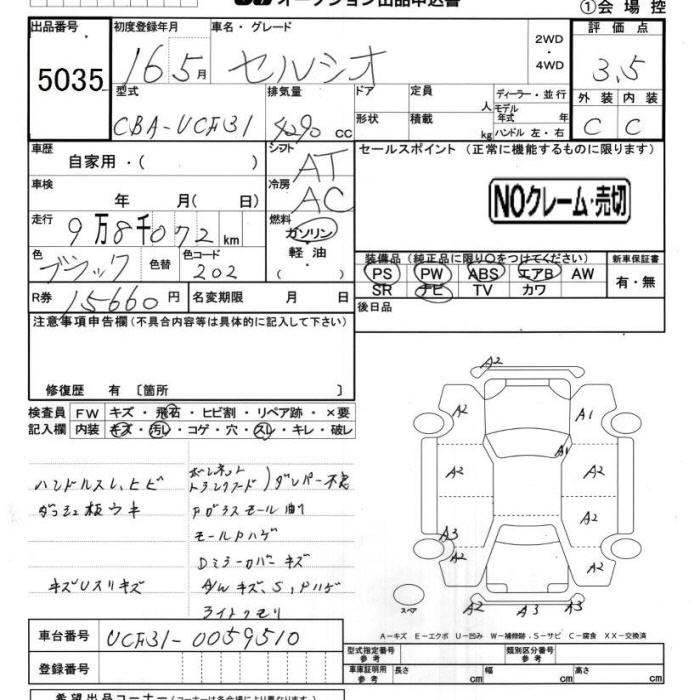 オークション出品申込書
①会場控
出品番号 初度登録年月 車名・グレード 2WD・4WD 評価点
5035 16 5月 セルシオ 3.5
型式 排気量 ドア 定員 人 ディーラー・並行 外装 内装
モデル年式 年
CBA-UCF31 4290 cc 形状 積載 kg ハンドル 左・右 C C
車歴 シフト セールスポイント (正常に機能するものに限ります)
自家用・( ) AT
車検 冷房 NOクレーム・売切
年 月( 日) AC
走行 燃料
9万8千072km ガソリン
色 色替 色コード 軽油 装備品 (純正品に限り○をつけてください) 新車保証書
ブラック 202 ( ) PS PW ABS エアB AW 有・無
R券 15660円 名変期限 月 日 SR ナビ TV カワ
注意事項申告欄(不具合内容等は具体的に記入して下さい) 後日品
修復歴 有 〔箇所 〕
検査員 FW キズ・飛石・ヒビ割・リペア跡・×要
記入欄 内装 キズ・汚レ・コゲ・穴・スレ・キレ・破レ
ハンドルスレ、ヒビ ボンネット トランクフード)ダンパー不良
ダッシュ板ウキ Fガラスモール割
モールPハゲ
Dミラーカバーキズ
キズUスリキズ A/Wキズ、S、Pハゲ
ライトクモリ
A2
A2 A1
A1
A2 A2
A2
A3
A2 A2
スペア A2 A3 A3
A-キズ E-エクボ U-凹み W-補修跡 S-サビ C-腐食 XX-交換済
車台番号 UCF31-0059510
登録番号
型式指定番号 参考 類別区分番号 参考
車庫証明用 参考 長さ cm 幅 cm 高さ cm
希望出品コーナー (コーナーは各会場により異なります)